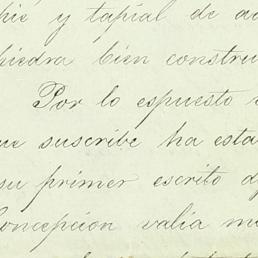 y tapial de
piedra bien constru
Por lo espuesto
que suscribe ha esta
su primer escrito
Concepcion valia